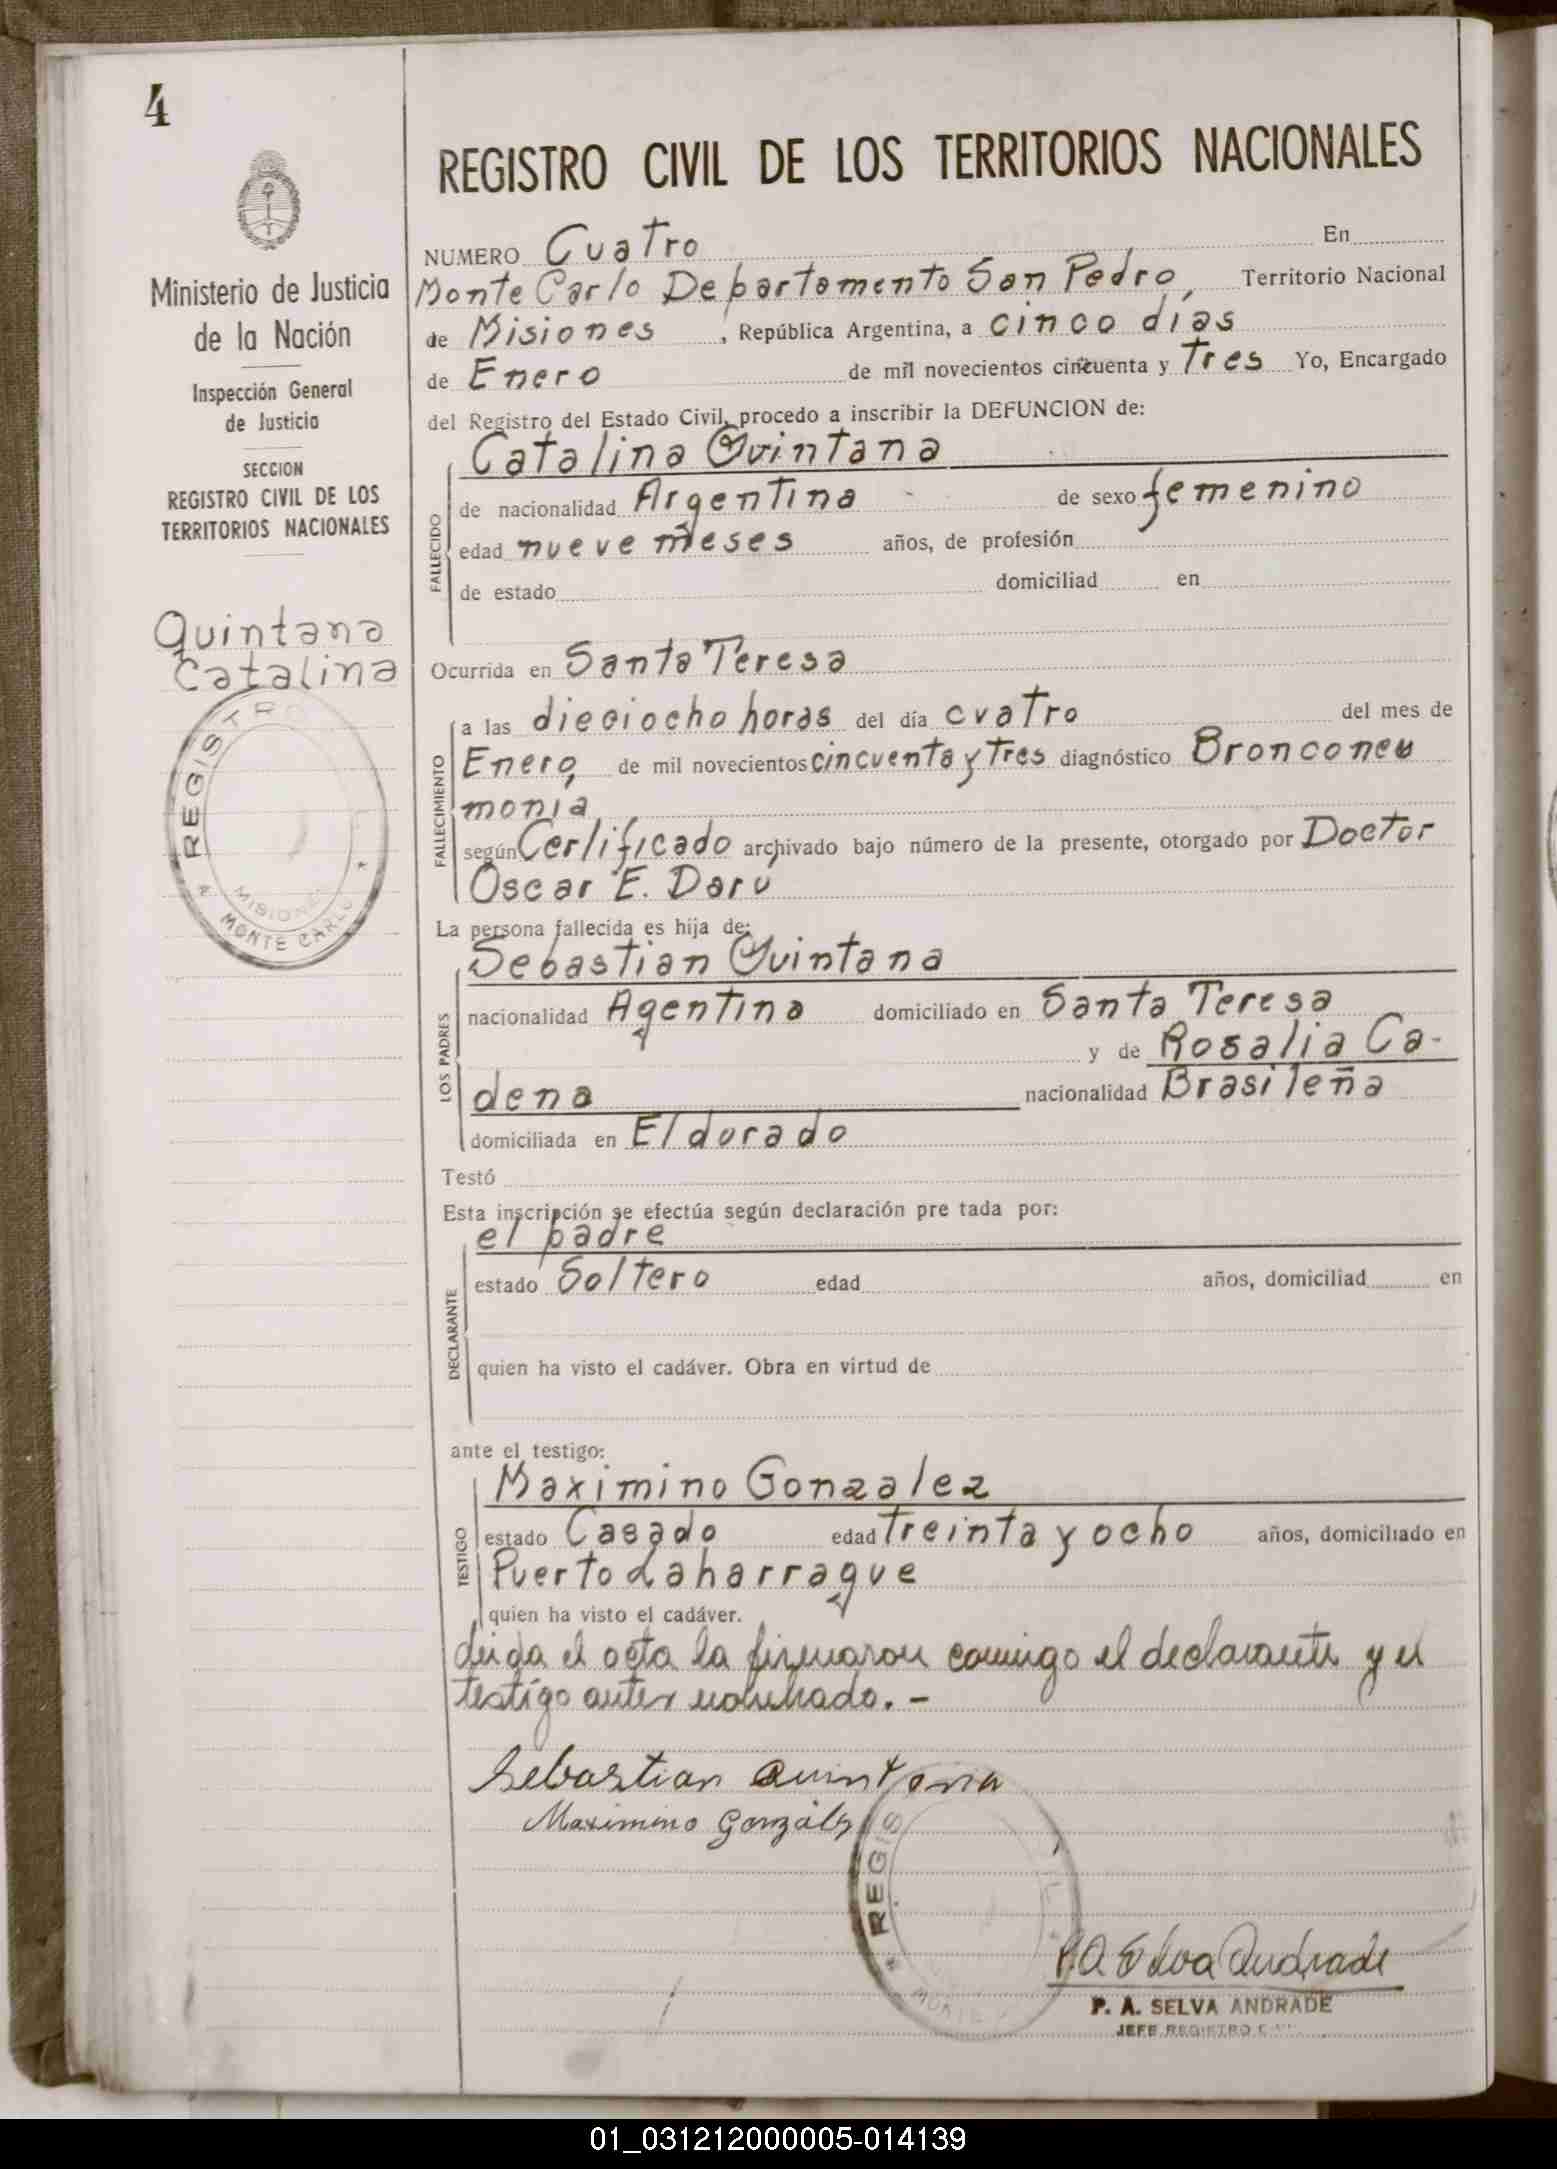 4
Ministerio de Justicia
de la Nación
Inspección General
de Justicia
SECCION
REGISTRO CIVIL DE LOS
TERRITORIOS NACIONALES
Quintana
Catalina
REGISTRO
MISIONES
* MONTE CARLO *
REGISTRO CIVIL DE LOS TERRITORIOS NACIONALES
NUMERO Cuatro En
Monte Carlo Departamento San Pedro, Territorio Nacional
de Misiones, República Argentina, a cinco dias
de Enero de mil novecientos cincuenta y tres Yo, Encargado
del Registro del Estado Civil, procedo a inscribir la DEFUNCION de:
FALLECIDO
Catalina Quintana
de nacionalidad Argentina de sexo femenino
edad nueve meses años, de profesión
de estado domiciliad en
Ocurrida en Santa Teresa
FALLECIMIENTO
a las dieciocho horas del día cuatro del mes de
Enero, de mil novecientos cincuenta y tres diagnóstico Bronconeu
monia
según Certificado archivado bajo número de la presente, otorgado por Doctor
Oscar E. Darú
La persona fallecida es hija de:
LOS PADRES
Sebastian Quintana
nacionalidad Agentina domiciliado en Santa Teresa
y de Rosalia Ca-
dena nacionalidad Brasileña
domiciliada en Eldorado
Testó
Esta inscripción se efectúa según declaración pre tada por:
DECLARANTE
el padre
estado Soltero edad años, domiciliad en
quien ha visto el cadáver. Obra en virtud de
ante el testigo:
TESTIGO
Maximino Gonzalez
estado Casado edad treinta y ocho años, domiciliado en
Puerto Laharrague
quien ha visto el cadáver.
Leida el acta la firmaron conmigo el declarante y el
testigo antes nombrado. -
Sebastian Quintana
Maximino Gonzálz
REGIS
MONTE
P.A Selva Andrade
P. A. SELVA ANDRADE
JEFE REGISTRO CIVIL
01_031212000005-014139